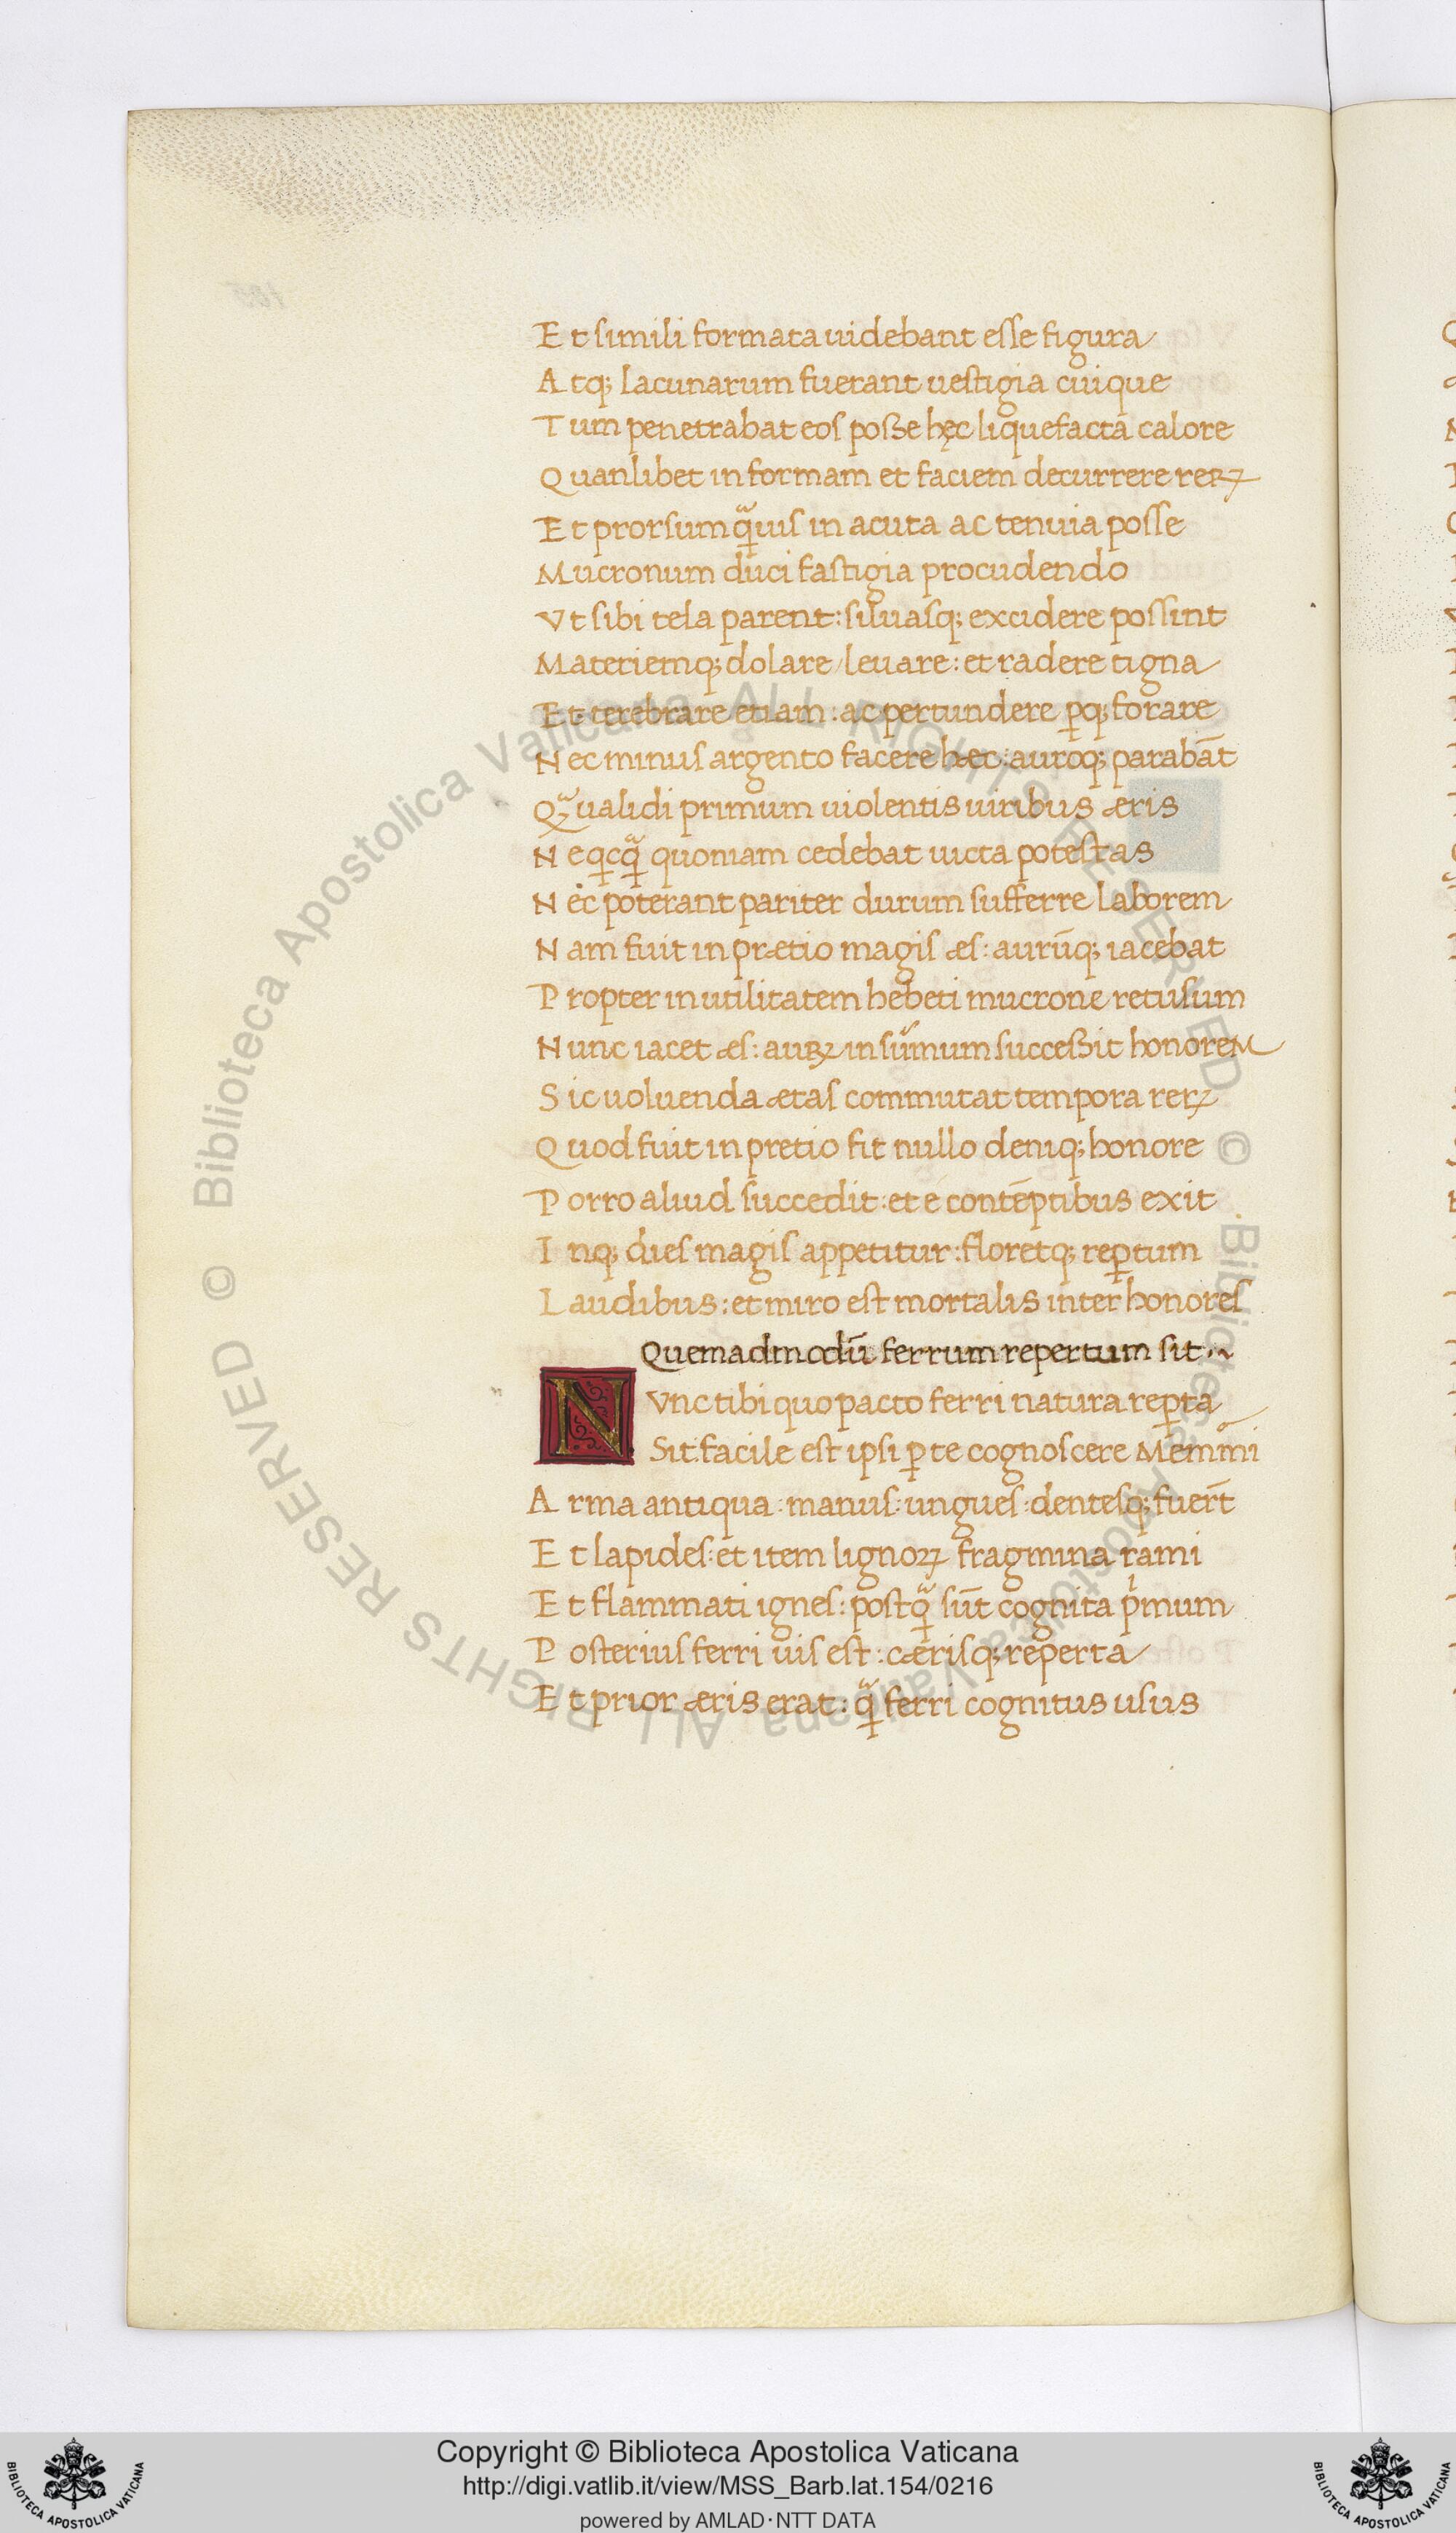 Et simili formata uidebant esse figura
Atq; lacunarum fuerant uestigia cuique
Tum penetrabat eos posse hęc liquefacta calore
Quanlibet in formam et faciem decurrere rerꝝ
Et prorsum qᷓuis in acuta ac tenuia posse
Mucronum duci fastigia procudendo
Vt sibi tela parent: siluasq; excidere possint
Materiemq; dolare / leuare: et radere tigna
Et terebrare etiam: ac pertundere ꝑq; forare
Nec minus argento facere hæc: auroq; parabāt
Qᷓ ualidi primum uiolentis uiribus æris
Neqcqᷓ quoniam cedebat uicta potestas
Nec poterant pariter durum sufferre laborem
Nam fuit in prætio magis æs: aurūq; iacebat
Propter inutilitatem hebeti mucrone retusum
Nunc iacet æs: auꝝ in sūmum successit honoreM
Sic uoluenda ætas commutat tempora rerꝝ
Quod fuit in pretio fit nullo deniq; honore
Porro aliud succedit: et e contēptibus exit
Inq; dies magis appetitur: floretq; reꝑtum
Laudibus: et miro est mortalis inter honores
Quemadmodū ferrum repertum sit
NVnc tibi quo pacto ferri natura reꝑta
Sit: facile est ipsi ꝑ te cognoscere Memmi
Arma antiqua: manus: ungues: dentesq; fuerт̄
Et lapides: et item lignoꝝ fragmina rami
Et flammati ignes: postqᷓ sūt cognita pͥmum
Posterius ferri uis est: cærisq; reperta
Et prior æris erat: qᷓ ferri cognitus usus
© Biblioteca Apostolica Vaticana ALL RIGHTS RESERVED © Biblioteca Apostolica Vaticana ALL RIGHTS RESERVED
BIBLIOTECA APOSTOLICA VATICANA
Copyright © Biblioteca Apostolica Vaticana
http://digi.vatlib.it/view/MSS_Barb.lat.154/0216
powered by AMLAD·NTT DATA
BIBLIOTECA APOSTOLICA VATICANA